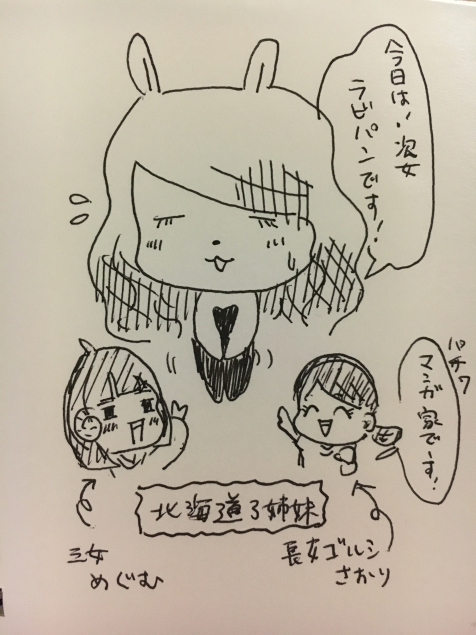 今日は、次女
ラビパンです!
パチプロ
マンガ家でーす!
北海道3姉妹
三女
めぐむ
長女ゴルシ
さかり